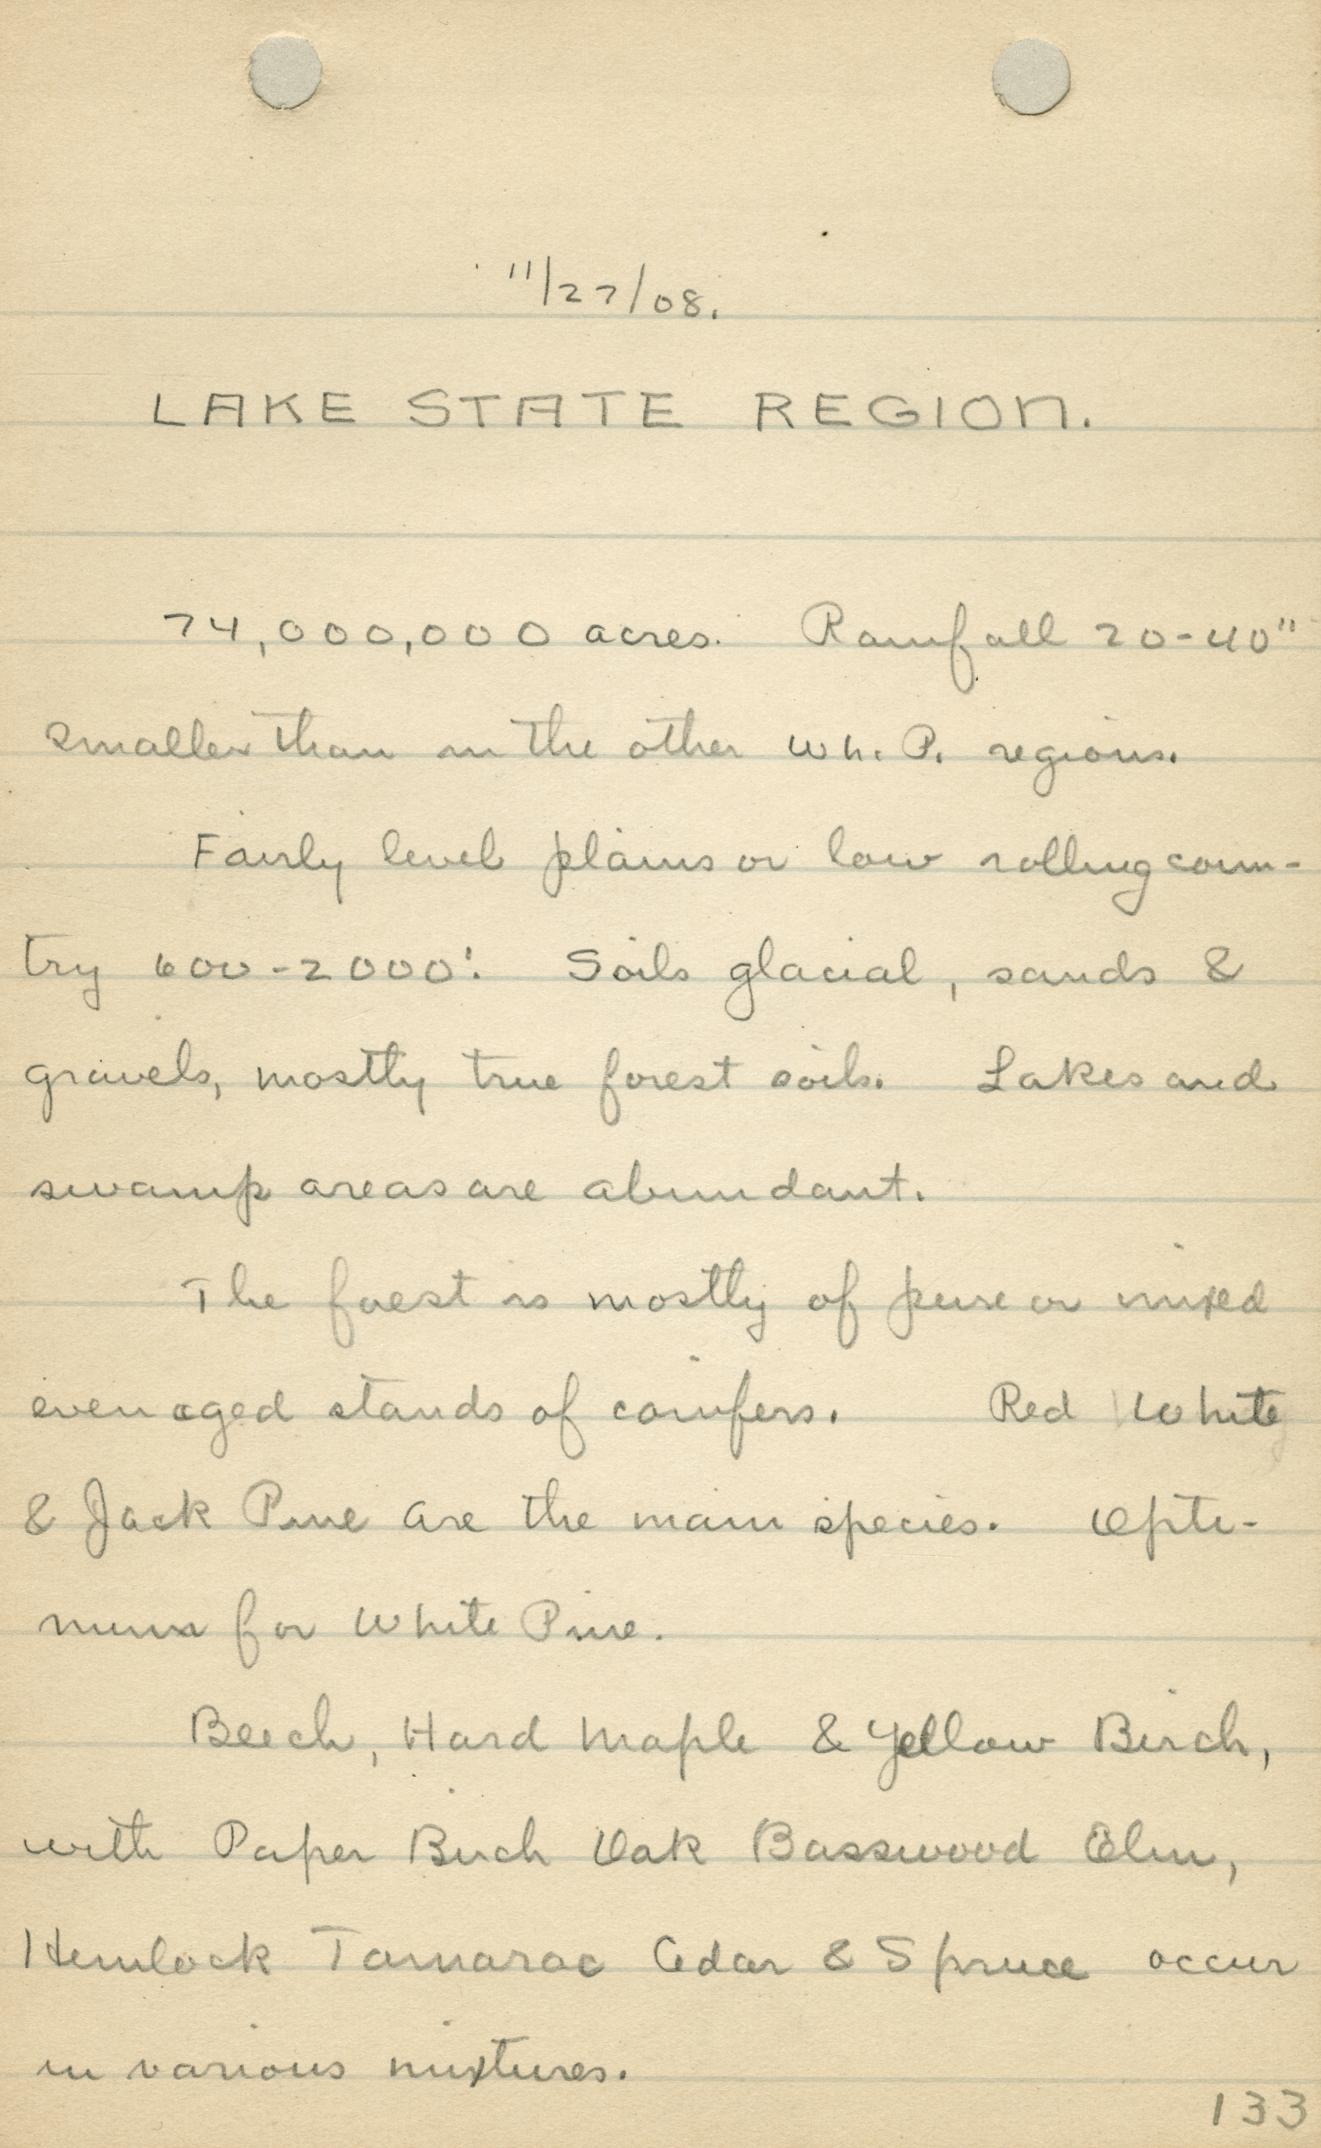 11/27/08.
LAKE STATE REGION.
74,000,000 acres. Rainfall 20-40"
smaller than in the other Wh. P. regions.
Fairly level plains or low rolling coun-
try 600-2000'. Soils glacial, sands &
gravels, mostly true forest soils. Lakes and
swamp areas are abundant.
The forest is mostly of pure or mixed
even aged stands of conifers. Red White
& Jack Pine are the main species. Opti-
mum for White Pine.
Beech, Hard Maple & Yellow Birch,
with Paper Birch Oak Basswood Elm,
Hemlock Tamarac Cedar & Spruce occur
in various mixtures.
133